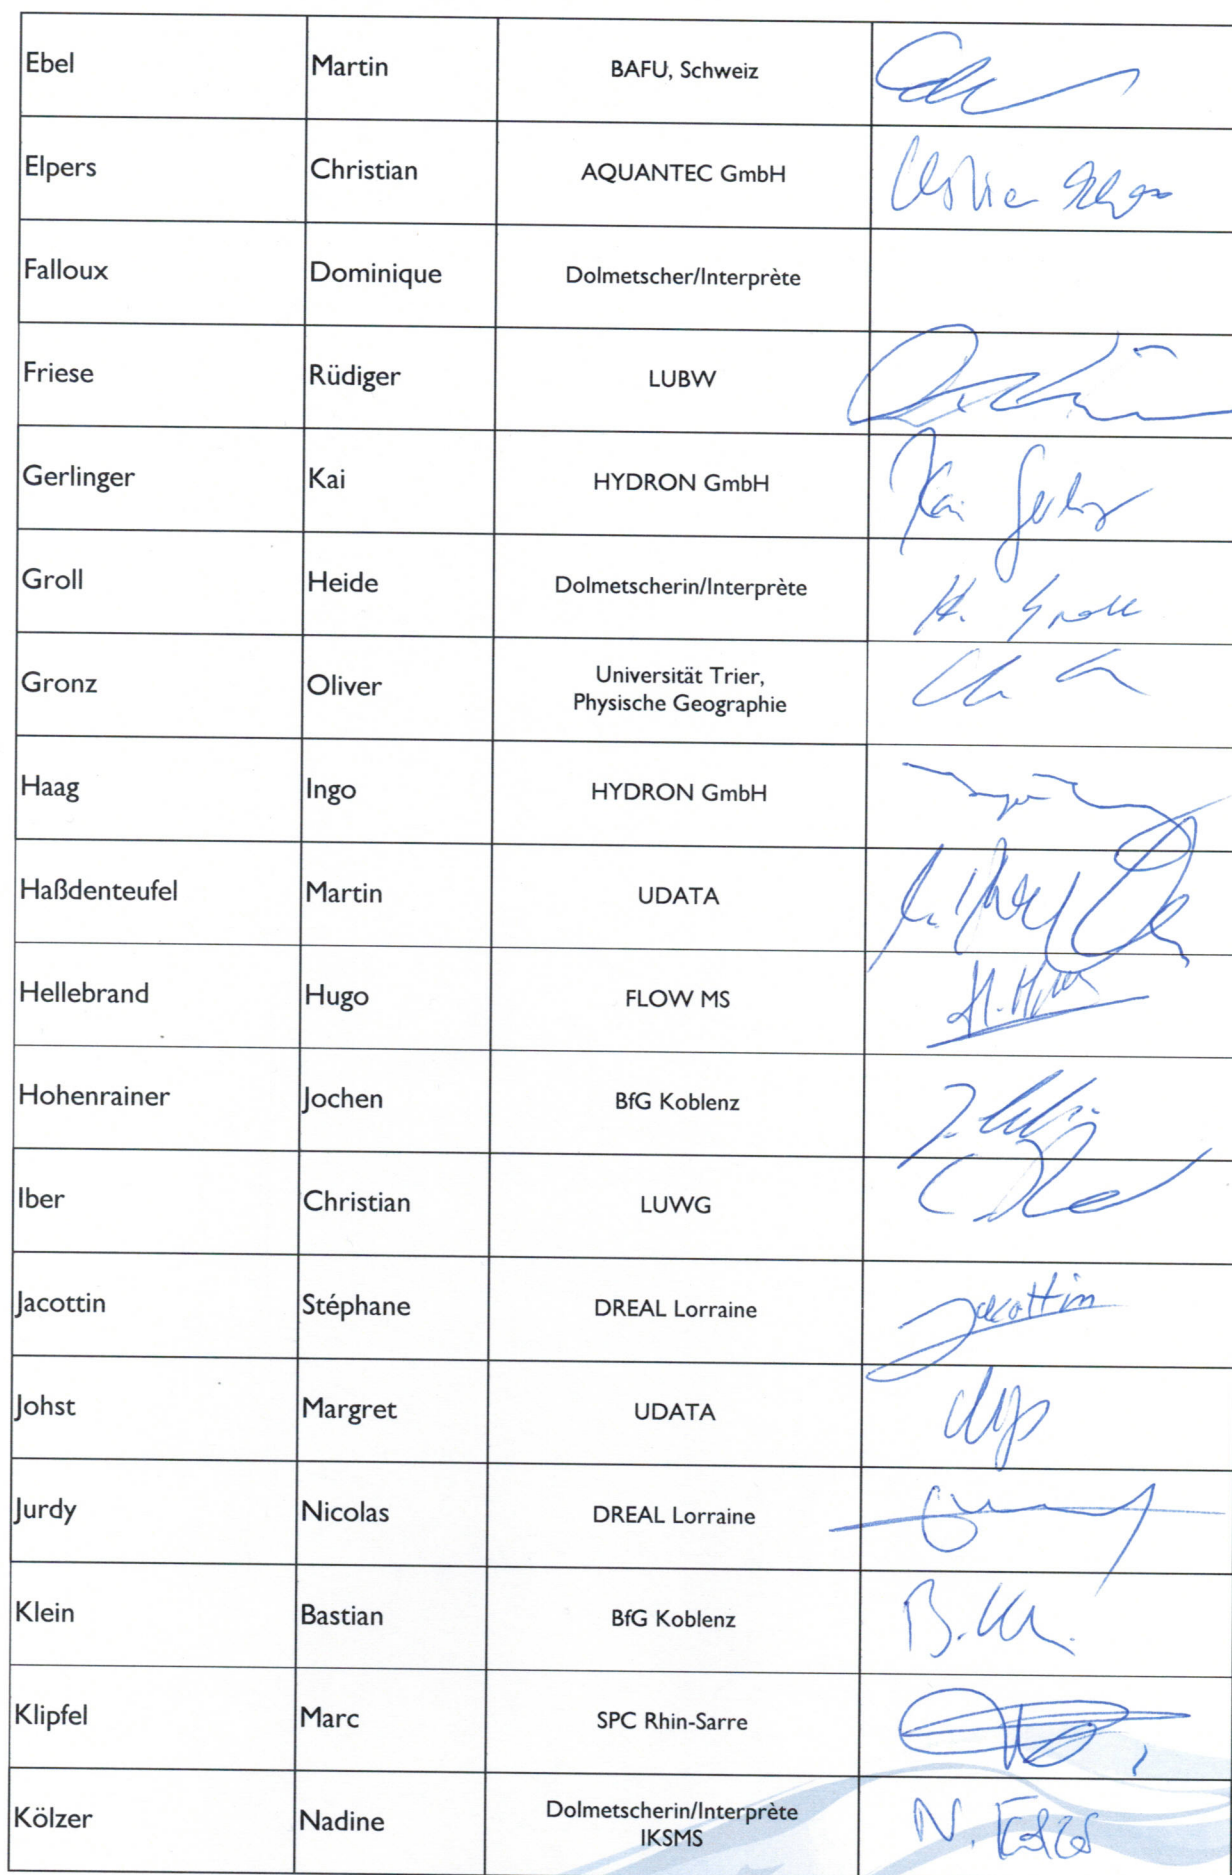 Ebel Martin BAFU, Schweiz
Elpers Christian AQUANTEC GmbH
Falloux Dominique Dolmetscher/Interprète
Friese Rüdiger LUBW
Gerlinger Kai HYDRON GmbH Kai
Groll Heide Dolmetscherin/Interprète H. Groll
Gronz Oliver Universität Trier,
Physische Geographie
Haag Ingo HYDRON GmbH
Haßdenteufel Martin UDATA
Hellebrand Hugo FLOW MS
Hohenrainer Jochen BfG Koblenz
Iber Christian LUWG
Jacottin Stéphane DREAL Lorraine Jacottin
Johst Margret UDATA
Jurdy Nicolas DREAL Lorraine
Klein Bastian BfG Koblenz
Klipfel Marc SPC Rhin-Sarre
Kölzer Nadine Dolmetscherin/Interprète
IKSMS